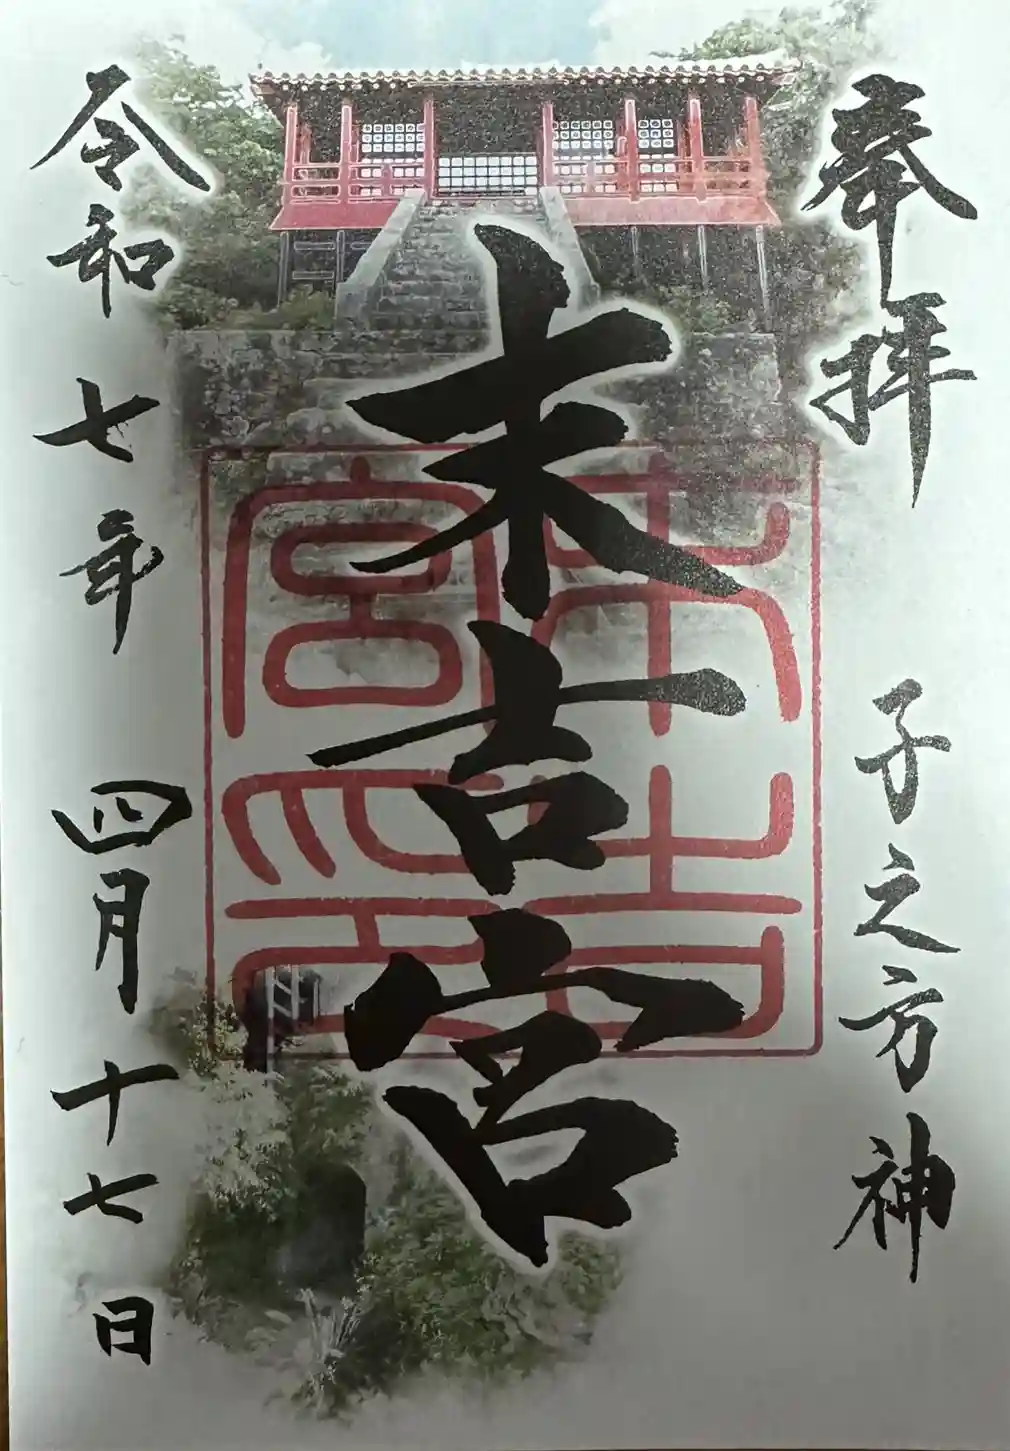 奉拝
子之方神
末吉宮
末吉宮印
令和七年四月十七日